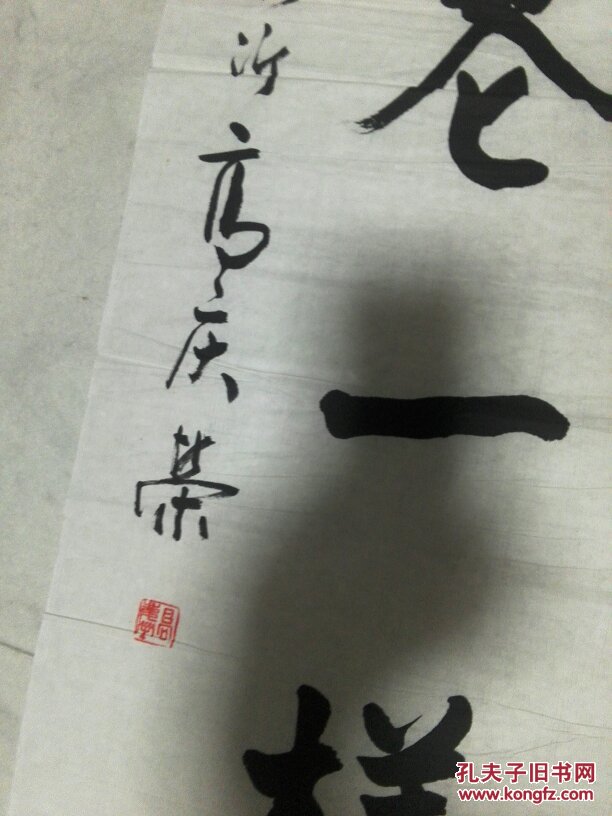 苍一样
沂高庆荣
孔夫子旧书网
www.kongfz.com